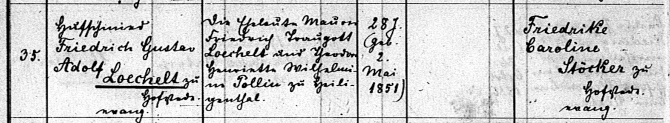 35.
Hufschmied
Friedrich Gustav
Adolf
Loechelt zu
Hofstede
evang.
Die Eheleute Maurer
Friedrich Traugott
Loechelt und Theodore
Henriette Wilhelmi-
ne Pollin zu Heili-
genthal.
28 J.
(geb.
2.
Mai
1851)
Friedrike
Caroline
Stöcker zu
Hofstede
evang.